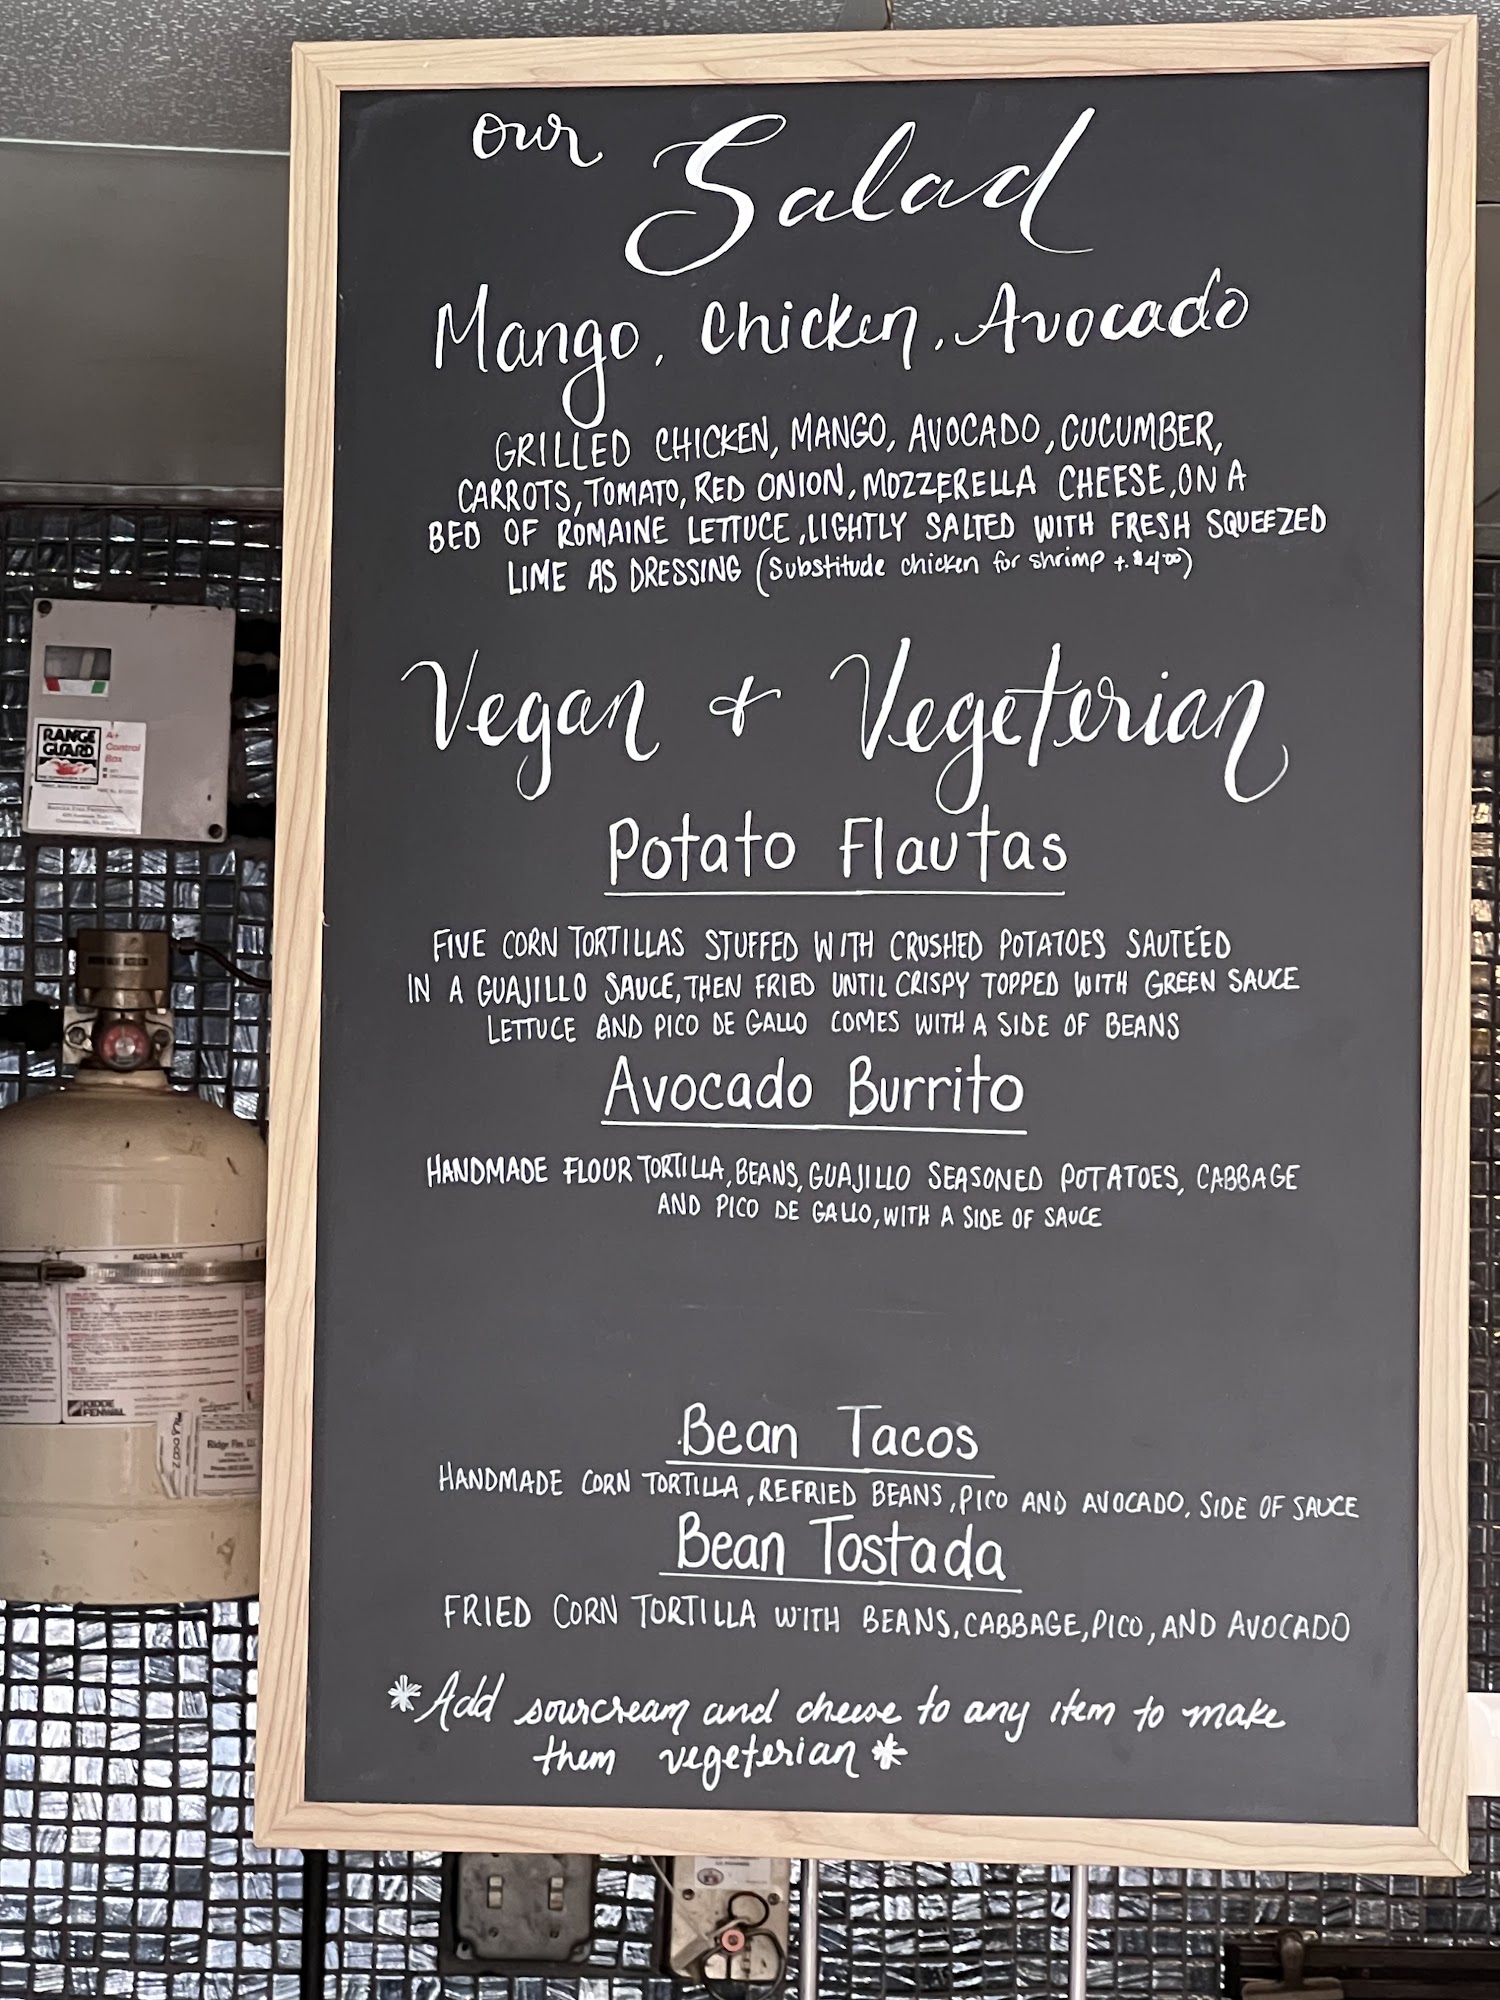 our
Salad
Mango, Chicken, Avocado
GRILLED CHICKEN, MANGO, AVOCADO, CUCUMBER,
CARROTS, TOMATO, RED ONION, MOZZERELLA CHEESE, ON A
BED OF ROMAINE LETTUCE, LIGHTLY SALTED WITH FRESH SQUEEZED
LIME AS DRESSING (Substitude chicken for shrimp +.$4.00)
Vegan + Vegeterian
Potato Flautas
FIVE CORN TORTILLAS STUFFED WITH CRUSHED POTATOES SAUTÉED
IN A GUAJILLO SAUCE, THEN FRIED UNTIL CRISPY TOPPED WITH GREEN SAUCE
LETTUCE AND PICO DE GALLO COMES WITH A SIDE OF BEANS
Avocado Burrito
HANDMADE FLOUR TORTILLA, BEANS, GUAJILLO SEASONED POTATOES, CABBAGE
AND PICO DE GALLO, WITH A SIDE OF SAUCE
Bean Tacos
HANDMADE CORN TORTILLA, REFRIED BEANS, PICO AND AVOCADO, SIDE OF SAUCE
Bean Tostada
FRIED CORN TORTILLA WITH BEANS, CABBAGE, PICO, AND AVOCADO
*Add sourcream and cheese to any item to make
them vegeterian*
RANGE
GUARD
A+
Control
Box
AQUA-BLUE
KIDDE
FENWAL